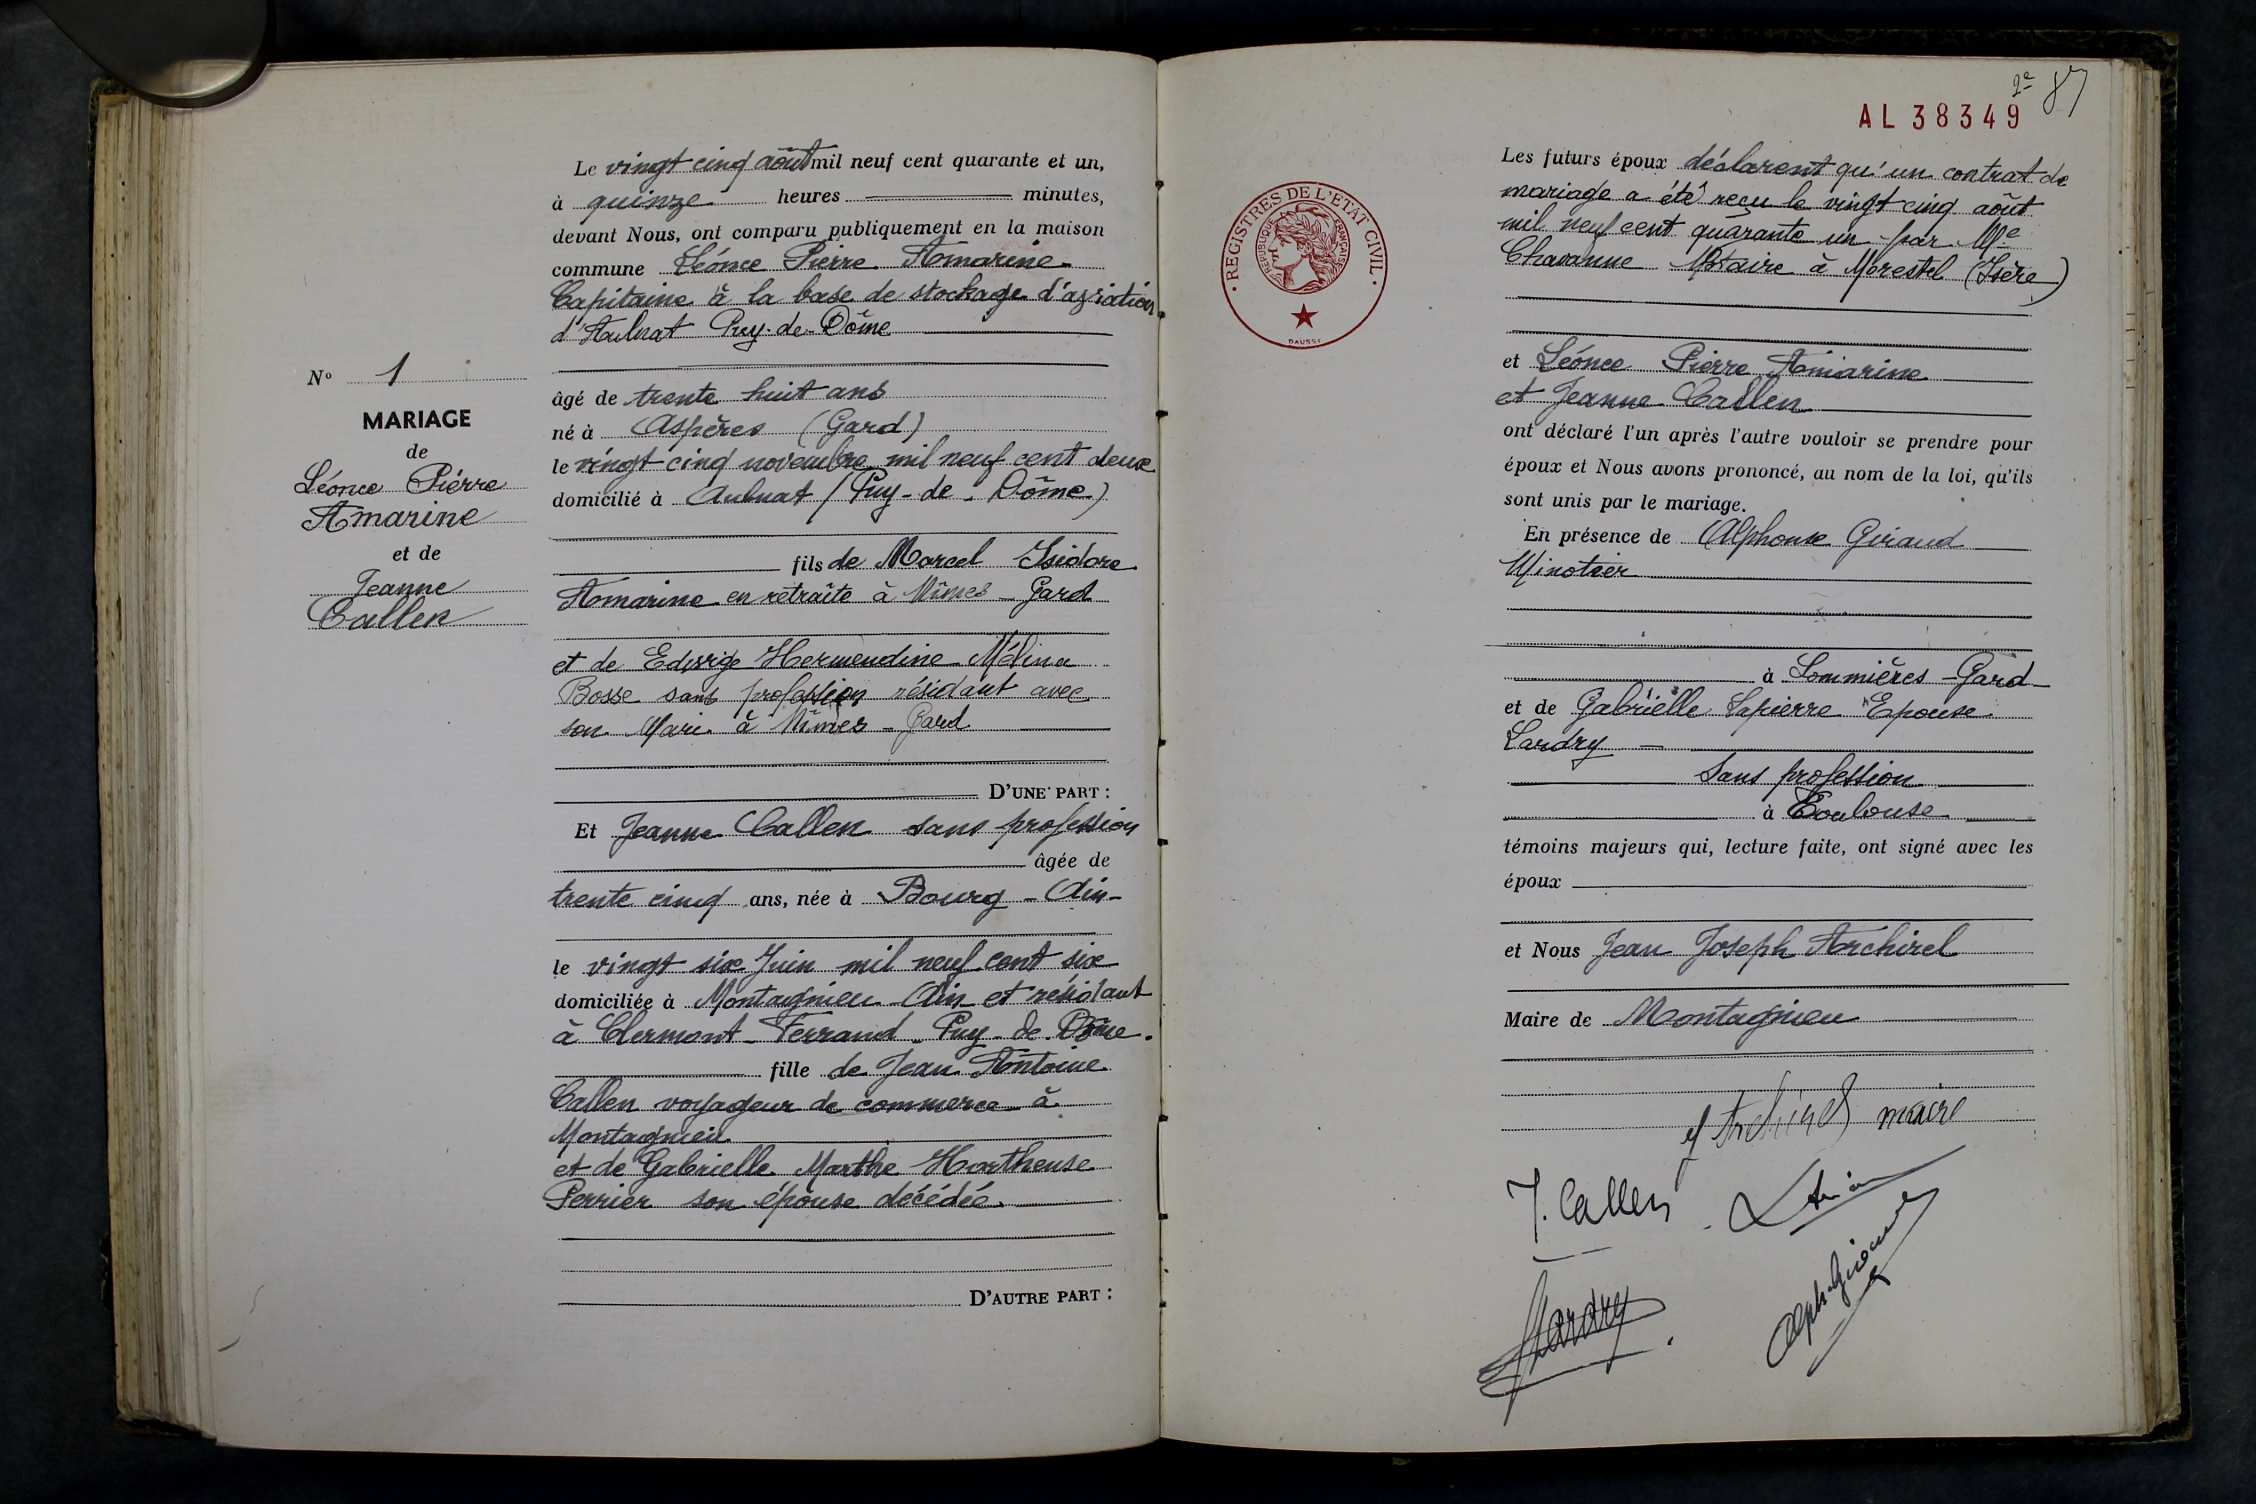 Le vingt cinq août mil neuf cent quarante et un,
à quinze heures minutes,
devant Nous, ont comparu publiquement en la maison
commune Léonce Pierre Amarine
Capitaine à la base de stockage d'aviation
d'Aulnat Puy-de-Dôme
N° 1
MARIAGE
de
Léonce Pierre
Amarine
et de
Jeanne
Callen
âgé de trente huit ans
né à Aspères (Gard)
le vingt cinq novembre mil neuf cent deux
domicilié à Aulnat (Puy-de-Dôme)
fils de Marcel Isidore
Amarine en retraîte à Nîmes - Gard
et de Edwige Hermendine Mélina
Bosse sans profession résidant avec
son Mari à Nîmes - Gard
D'UNE PART :
Et Jeanne Callen sans profession
âgée de
trente cinq ans, née à Bourg - Ain -
le vingt six Juin mil neuf cent six
domiciliée à Montagnieu - Ain et résidant
à Clermont-Ferrand - Puy-de-Dôme.
fille de Jean Antoine
Callen voyageur de commerce à
Montagnieu
et de Gabrielle Marthe Hortheuse
Perrier son épouse décédée.
D'AUTRE PART :
2e 87
AL 38349
REGISTRES DE L'ETAT CIVIL
REPUBLIQUE FRANÇAISE
DAUSSY
Les futurs époux déclarent qu'un contrat de
mariage a été reçu le vingt cinq août
mil neuf cent quarante un par Me
Chavanne Notaire à Morestel (Isère)
et Léonce Pierre Amarine
et Jeanne Callen
ont déclaré l'un après l'autre vouloir se prendre pour
époux et Nous avons prononcé, au nom de la loi, qu'ils
sont unis par le mariage.
En présence de Alphonse Giraud
Minotier
à Sommières - Gard -
et de Gabrielle Lapierre Epouse
Lardry
Sans profession
à Toulouse
témoins majeurs qui, lecture faite, ont signé avec les
époux
et Nous Jean Joseph Archirel
Maire de Montagnieu
Archirel maire
J. Callen
Lardry
Alph Giraud